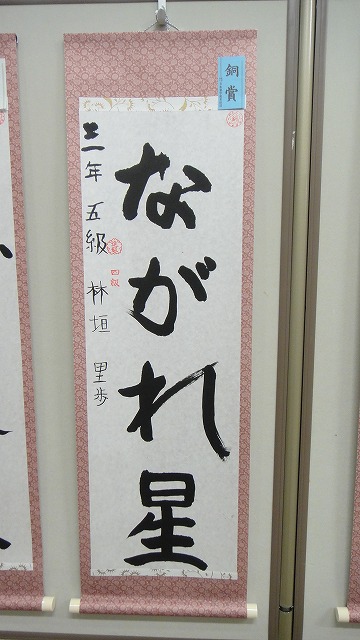 銅賞
ながれ星
三年 五級 林垣 里歩
四級